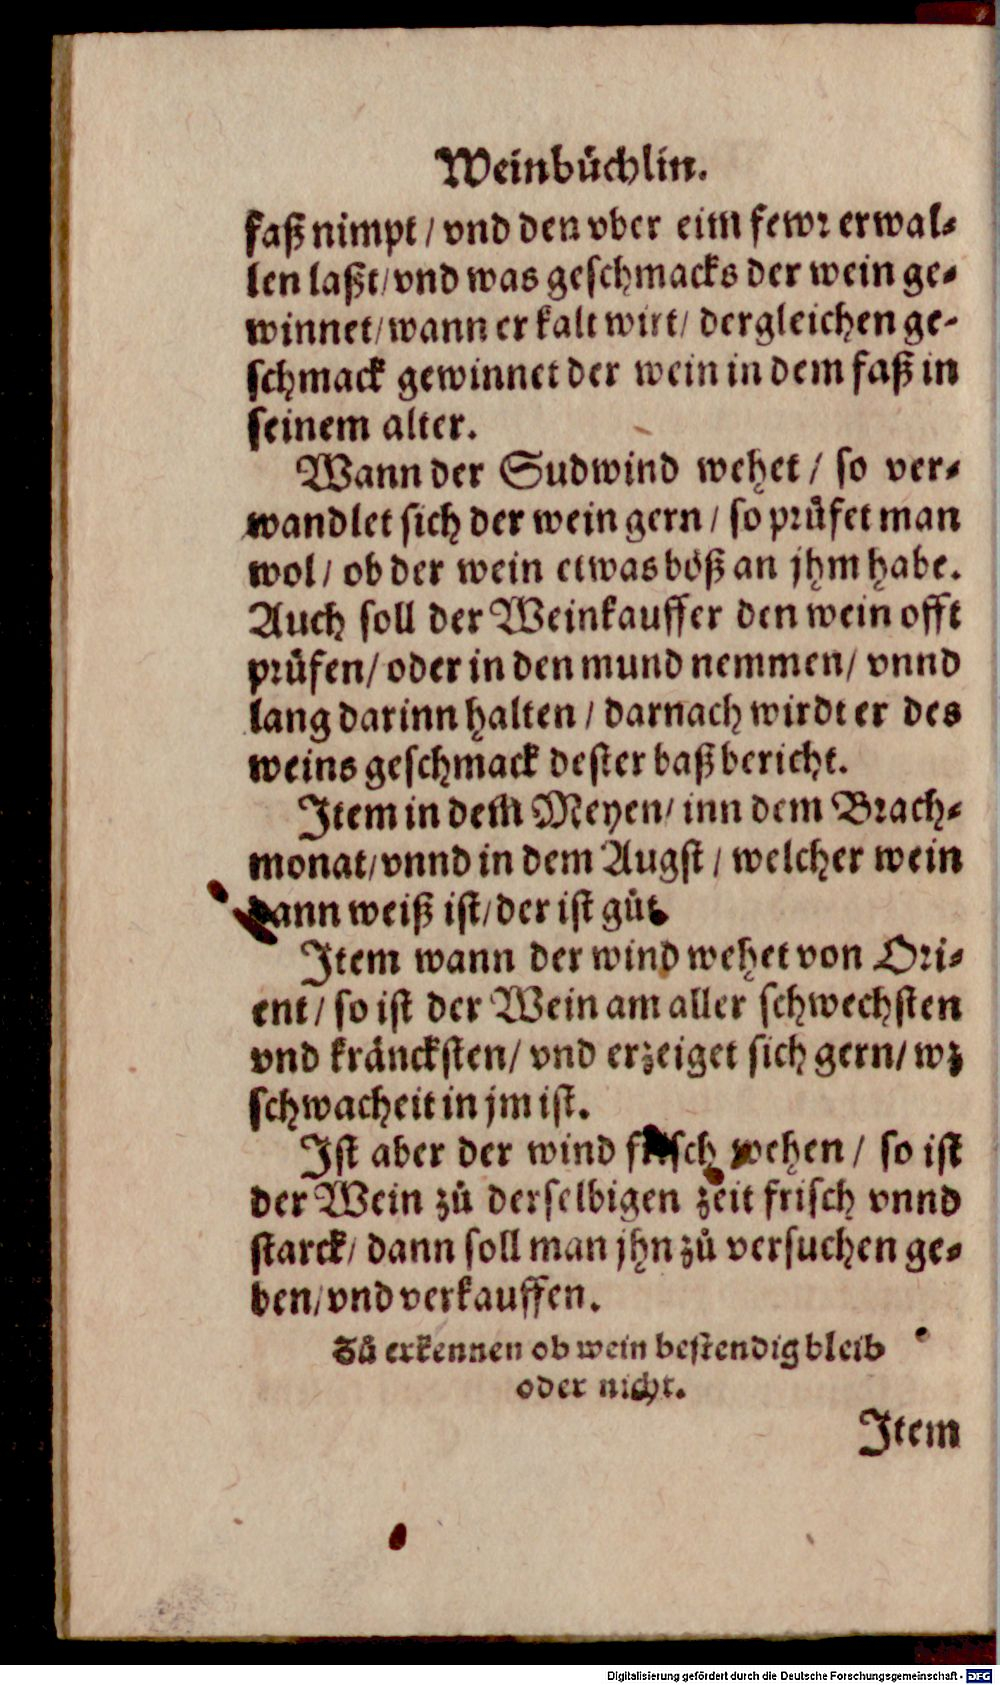 Weinbůchlin.
faß nimpt / vnd den vber eim fewr erwal⸗
len laßt / vnd was geschmacks der wein ge⸗
winnet / wann er kalt wirt / dergleichen ge⸗
schmack gewinnet der wein in dem faß in
seinem alter.
Wann der Sudwind wehet / so ver⸗
wandlet sich der wein gern / so prüfet man
wol / ob der wein etwas böß an jhm habe.
Auch soll der Weinkauffer den wein offt
prüfen / oder in den mund nemmen / vnnd
lang darinn halten / darnach wirdt er des
weins geschmack dester baß bericht.
Item in dem Meyen / inn dem Brach⸗
monat / vnnd in dem Augst / welcher wein
dann weiß ist / der ist gůt
Item wann der wind wehet von Ori⸗
ent / so ist der Wein am aller schwechsten
vnd kräncksten / vnd erzeiget sich gern / wz
schwacheit in jm ist.
Ist aber der wind frisch wehen / so ist
der Wein zů derselbigen zeit frisch vnnd
starck / dann soll man jhn zů versuchen ge⸗
ben / vnd verkauffen.
Zů erkennen ob wein bestendig bleib
oder nicht.
Item
Digitalisierung gefördert durch die Deutsche Forschungsgemeinschaft - DFG